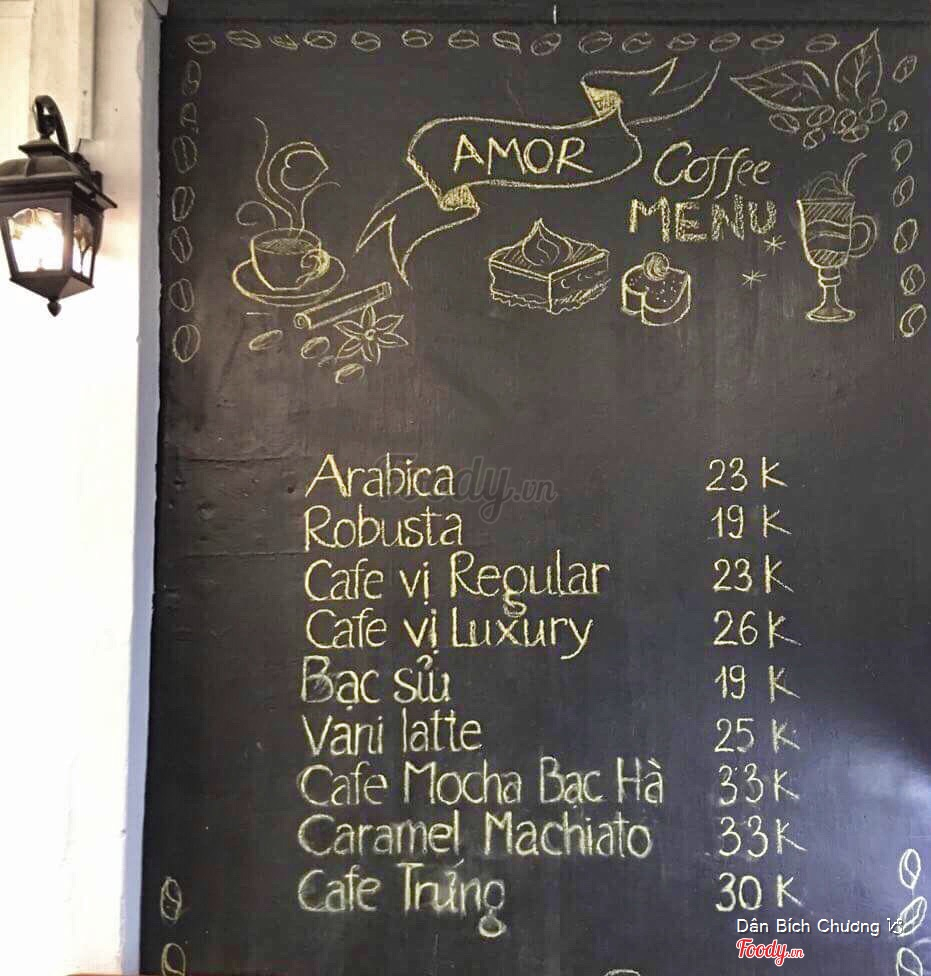 AMOR
Coffee
MENU
Foody.vn
Arabica 23 K
Robusta 19 K
Cafe vị Regular 23 K
Cafe vị Luxury 26 K
Bạc sỉu 19 K
Vani latte 25 K
Cafe Mocha Bạc Hà 33 K
Caramel Machiato 33 K
Cafe Trứng 30 K
Dân Bích Chương
Foody.vn